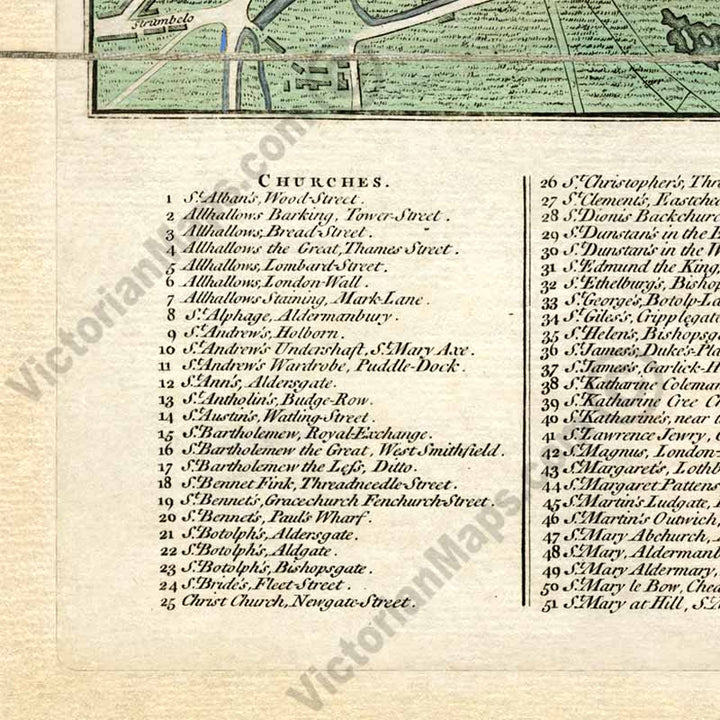 Strumbelo
CHURCHES.
1 St. Alban's, Wood-Street.
2 Allhallows Barking, Tower-Street.
3 Allhallows, Bread-Street.
4 Allhallows the Great, Thames Street.
5 Allhallows, Lombard-Street.
6 Allhallows, London-Wall.
7 Allhallows Staining, Mark-Lane.
8 St. Alphage, Aldermanbury.
9 St. Andrew's, Holborn.
10 St. Andrew's Undershaft, St. Mary Axe.
11 St. Andrew's Wardrobe, Puddle-Dock.
12 St. Ann's, Aldersgate.
13 St. Antholin's, Budge-Row.
14 St. Austin's, Watling-Street.
15 St. Bartholemew, Royal-Exchange.
16 St. Bartholemew the Great, West Smithfield.
17 St. Bartholemew the Leſs, Ditto.
18 St. Bennet Fink, Threadneedle-Street.
19 St. Bennet's, Gracechurch Fenchurch-Street.
20 St. Bennet's, Paul's Wharf.
21 St. Botolph's, Aldersgate.
22 St. Botolph's, Aldgate.
23 St. Botolph's, Bishopsgate.
24 St. Bride's, Fleet-Street.
25 Christ Church, Newgate-Street.
26 St. Christopher's, Thr
27 St. Clement's, Eastche
28 St. Dionis Backchurc
29 St. Dunstan's in the E
30 St. Dunstan's in the W
31 St. Edmund the King,
32 St. Ethelburg's, Bishop
33 St. George's, Botolp-La
34 St. Giles's, Cripplegate
35 St. Helen's, Bishopsga
36 St. James's, Duke's-Pla
37 St. James's, Garlick-H
38 St. Katharine Coleman
39 St. Katharine Cree Ch
40 St. Katharine's, near t
41 St. Lawrence Jewry, C
42 St. Magnus, London-
43 St. Margaret's, Lothb
44 St. Margaret Pattens
45 St. Martin's Ludgate,
46 St. Martin's Outwich,
47 St. Mary Abchurch,
48 St. Mary, Aldermanb
49 St. Mary Aldermary,
50 St. Mary le Bow, Chea
51 St. Mary at Hill, St.
VictorianMaps.com
VictorianMaps.com